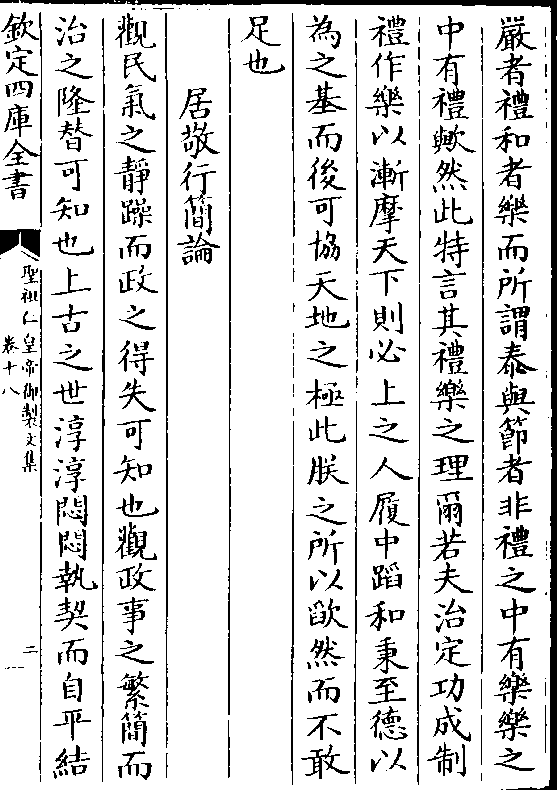 嚴者禮和者樂而所謂泰與節者非禮之中有樂樂之
中有禮歟然此特言其禮樂之理爾若夫治定功成制
禮作樂以漸摩天下則必上之人履中蹈和秉至德以
為之基而後可協天地之極此朕之所以歉然而不敢
足也
居敬行簡論
觀民氣之靜躁而政之得失可知也觀政事之繁簡而
治之隆替可知也上古之世淳淳悶悶執契而自平結
欽定四庫全書
聖祖仁皇帝御製文集
卷十八
二